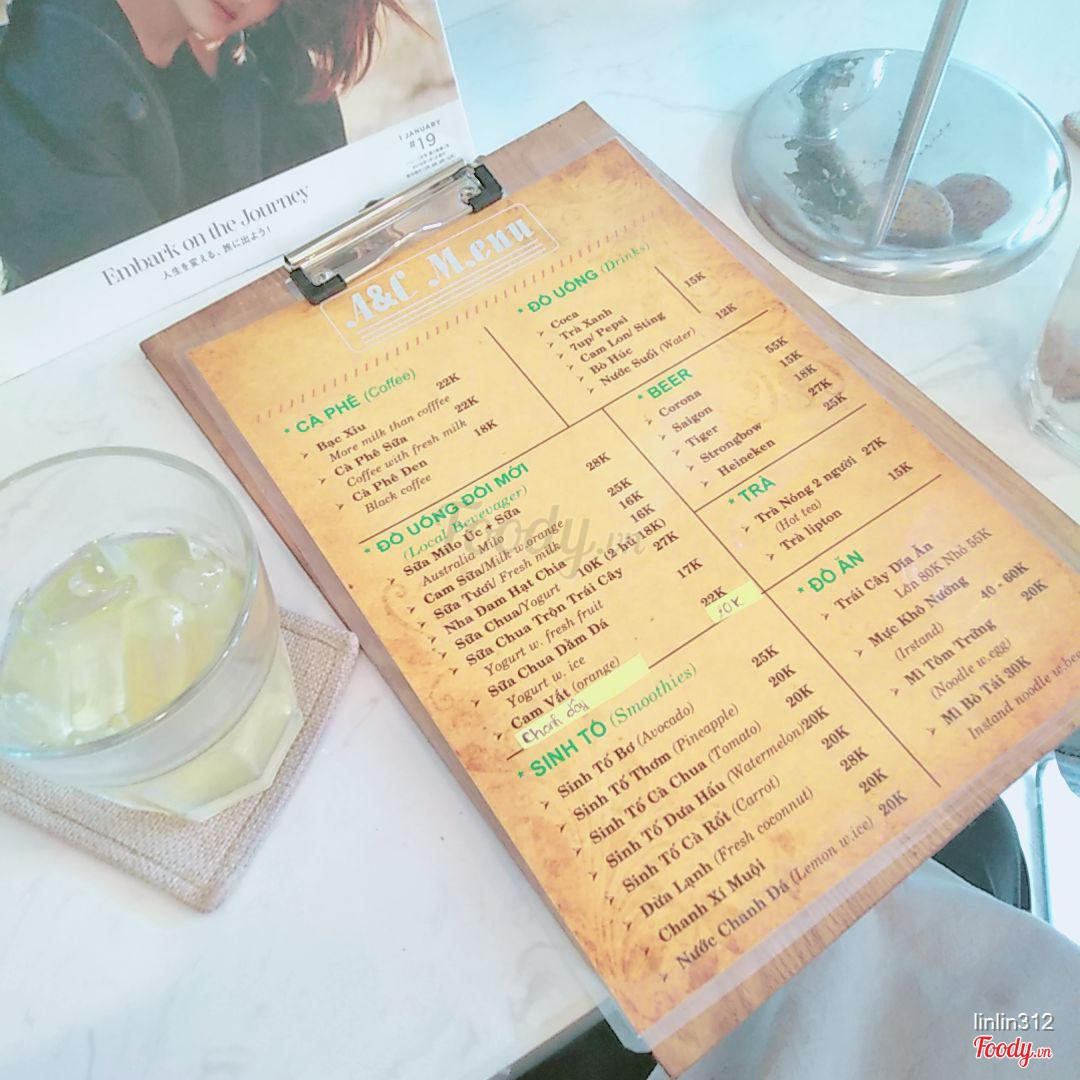 1 JANUARY
#19
Embark on the Journey
人生を変える、旅に出よう!
A&C Menu
* CÀ PHÊ (Coffee)
Bạc Xỉu 22K
More milk than cofffee
Cà Phê Sữa 22K
Coffee with fresh milk
Cà Phê Đen 18K
Black coffee
* ĐỒ UỐNG (Drinks)
Coca 15K
Trà Xanh
7up/ Pepsi
Cam Lon/ Sting
Bò Húc
Nước Suối (Water) 12K
* BEER
Corona 55K
Saigon 15K
Tiger 18K
Strongbow 27K
Heineken 25K
* ĐỒ UỐNG ĐÔI MỚI
(Local Bevevager)
Sữa Milo Úc + Sữa 28K
Australia Milo
Cam Sữa/Milk w orange 25K
Sữa Tươi/ Fresh milk 16K
Nha Đam Hạt Chia 16K
Sữa Chua/Yogurt 10K (2 hủ 18K)
Sữa Chua Trộn Trái Cây 27K
Yogurt w. fresh fruit
Sữa Chua Dầm Đá 17K
Yogurt w. ice
Cam Vắt (orange) 22K
Chanh dây 20K
* TRÀ
Trà Nóng 2 người 27K
(Hot tea)
Trà lipton 15K
* ĐỒ ĂN
Trái Cây Dĩa Ấn
Lớn 80K Nhỏ 55K
Mực Khô Nướng 40 - 60K
(Irstand)
Mì Tôm Trứng 20K
(Noodle w.egg)
Mì Bò Tái 30K
Instand noodle w.bee
* SINH TỐ (Smoothies)
Sinh Tố Bơ (Avocado) 25K
Sinh Tố Thơm (Pineapple) 20K
Sinh Tố Cà Chua (Tomato) 20K
Sinh Tố Dưa Hấu (Watermelon) 20K
Sinh Tố Cà Rốt (Carrot) 20K
Dừa Lạnh (Fresh coconnut) 28K
Chanh Xí Muội 20K
Nước Chanh Đá (Lemon w.ice) 20K
Foody.vn
linlin312
Foody.vn